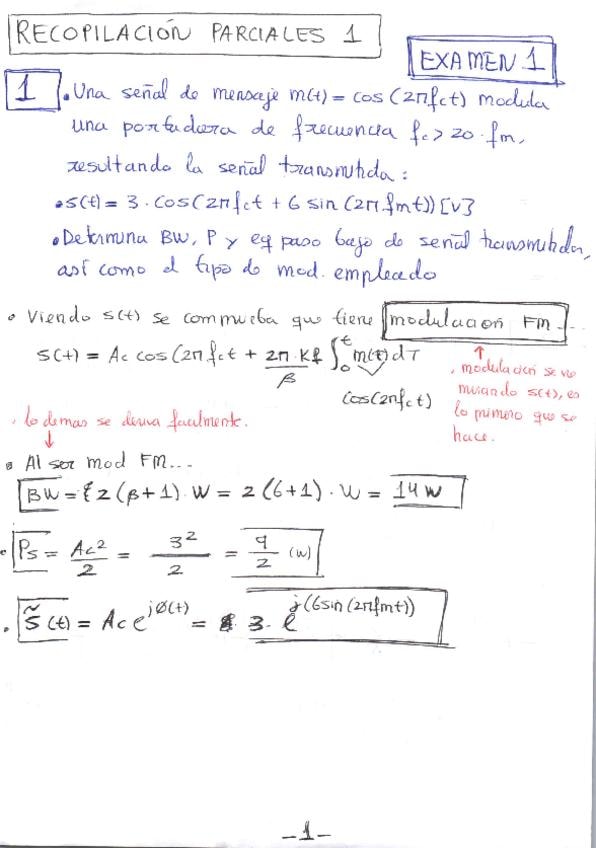 RECOPILACIÓN PARCIALES 1
EXAMEN 1
1 • Una señal de mensaje m(t) = cos(2πfct) modula
una portadora de frecuencia fc > 20·fm,
resultando la señal transmitida:
• s(t) = 3·cos(2πfct + 6 sin(2πfmt)) [v]
• Determina BW, P y eq paso bajo de señal transmitida,
así como el tipo de mod. empleado
• Viendo s(t) se commueba que tiene modulacion FM...
s(t) = Ac cos(2πfct + 2π·Kf ∫₀ᵗ m(t)dτ
β
cos(2πfct)
, modulación se ve
mirando s(t), es
lo primero que se
hace.
, lo demas se deriva facilmente.
• Al ser mod FM...
BW = {2(β+1)·W = 2(6+1)·W = 14W
• Ps = Ac²/2 = 3²/2 = 9/2 (w)
• s̃(t) = Ac e^jØ(t) = 3·e^j(6sin(2πfmt))
-1-